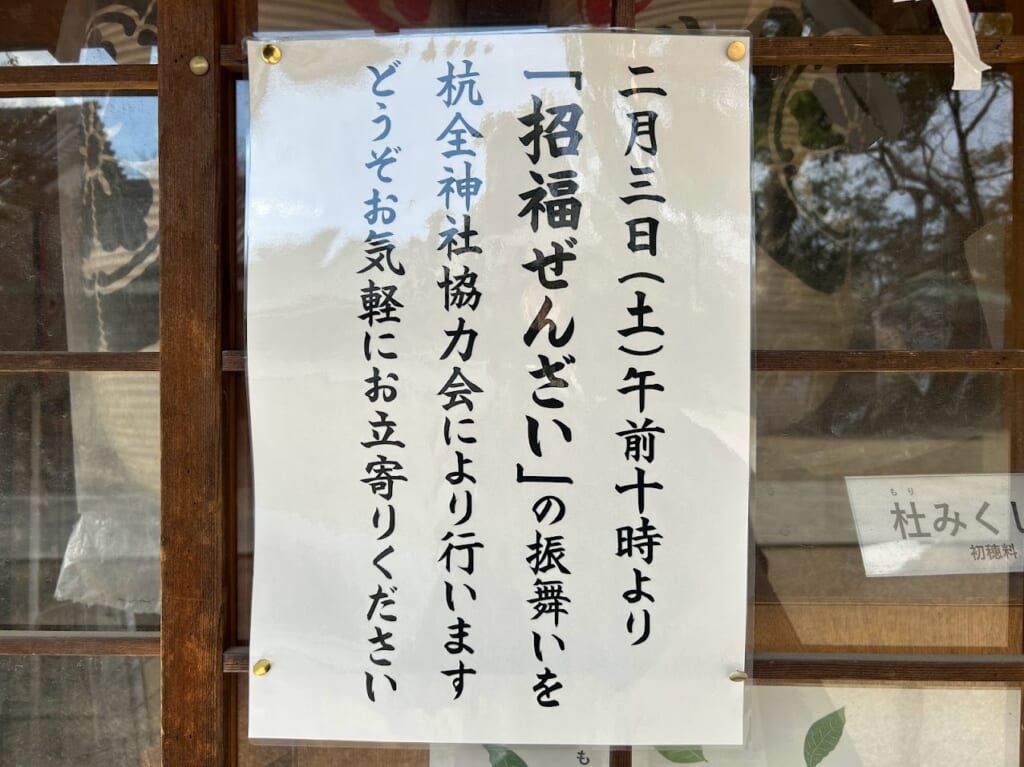 二月三日(土)午前十時より
「招福ぜんざい」の振舞いを
杭全神社協力会により行います
どうぞお気軽にお立寄りください
もり
杜みくじ
初穂料
も